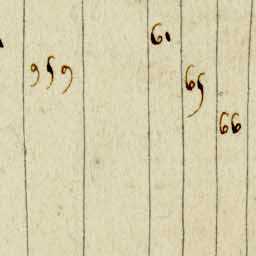 61
959
65
66